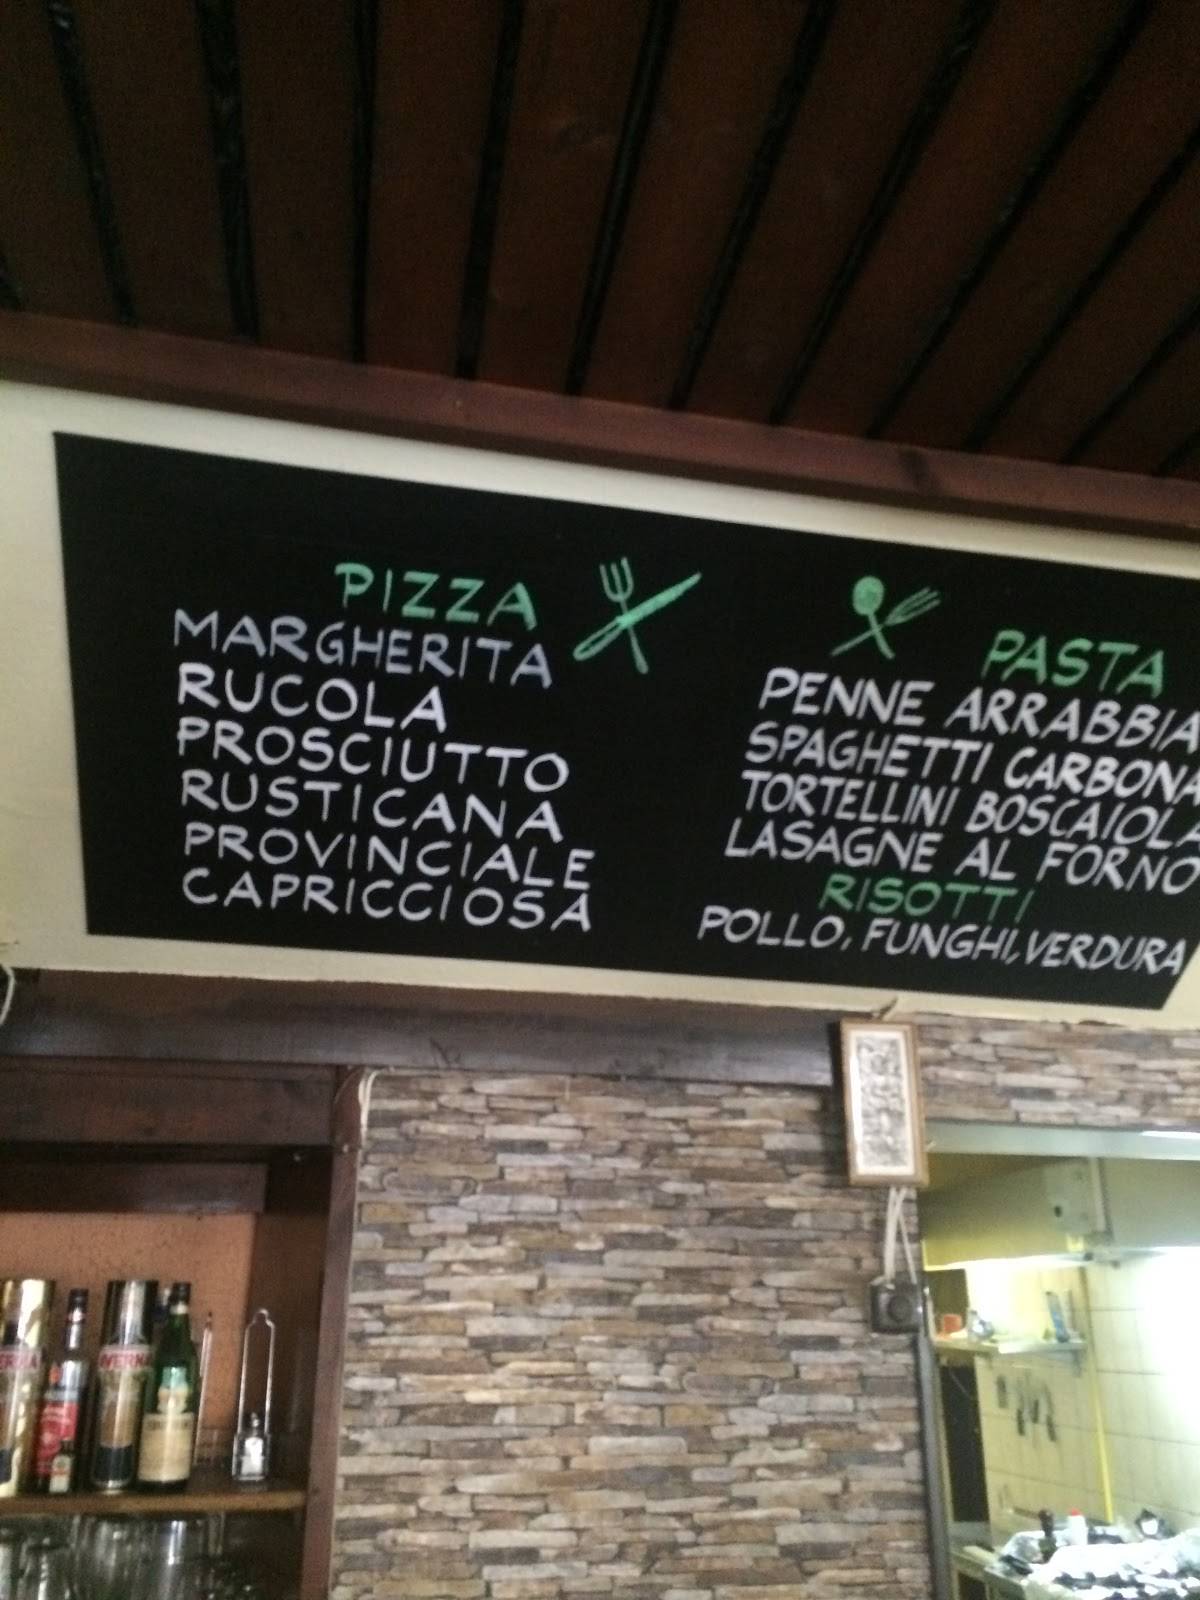 PIZZA
MARGHERITA
RUCOLA
PROSCIUTTO
RUSTICANA
PROVINCIALE
CAPRICCIOSA
PASTA
PENNE ARRABBIA
SPAGHETTI CARBONA
TORTELLINI BOSCAIOLA
LASAGNE AL FORNO
RISOTTI
POLLO, FUNGHI, VERDURA